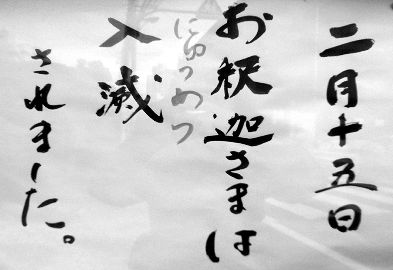 二月十五日
お釈迦さまは
にゅうめつ
入滅
されました。